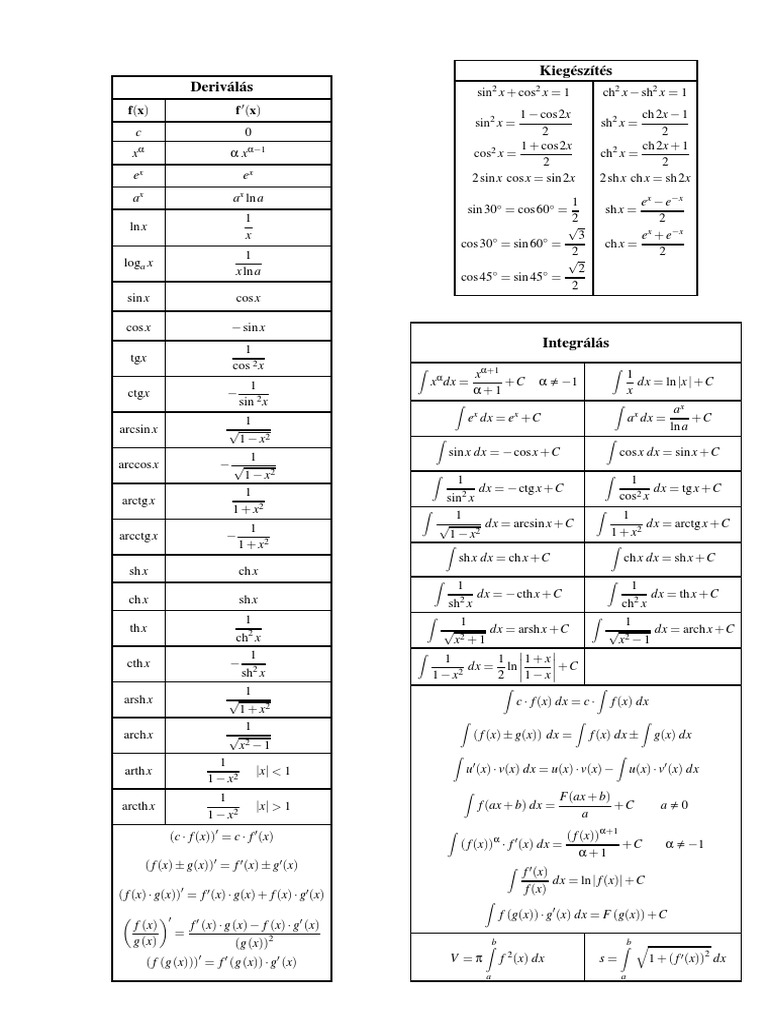 Deriválás
f(x) f′(x)
c 0
x^α α x^(α−1)
e^x e^x
a^x a^x ln a
ln x 1/x
log_a x 1/(x ln a)
sin x cos x
cos x − sin x
tgx 1/cos ²x
ctgx −1/sin ²x
arcsin x 1/√(1−x²)
arccos x −1/√(1−x²)
arctg x 1/(1+x²)
arcctg x −1/(1+x²)
sh x ch x
ch x sh x
th x 1/ch² x
cth x −1/sh² x
arsh x 1/√(1+x²)
arch x 1/√(x²−1)
arth x 1/(1−x²) |x| < 1
arcth x 1/(1−x²) |x| > 1
(c · f(x))′ = c · f′(x)
(f(x) ± g(x))′ = f′(x) ± g′(x)
(f(x) · g(x))′ = f′(x) · g(x) + f(x) · g′(x)
(f(x)/g(x))′ = (f′(x) · g(x) − f(x) · g′(x))/(g(x))²
(f(g(x)))′ = f′(g(x)) · g′(x)
Kiegészítés
sin² x + cos² x = 1 ch² x − sh² x = 1
sin² x = (1 − cos 2x)/2 sh² x = (ch 2x − 1)/2
cos² x = (1 + cos 2x)/2 ch² x = (ch 2x + 1)/2
2 sin x cos x = sin 2x 2 sh x ch x = sh 2x
sin 30° = cos 60° = 1/2 sh x = (e^x − e^−x)/2
cos 30° = sin 60° = √3/2 ch x = (e^x + e^−x)/2
cos 45° = sin 45° = √2/2
Integrálás
∫ x^α dx = x^(α+1)/(α+1) + C α ≠ −1 ∫ 1/x dx = ln |x| + C
∫ e^x dx = e^x + C ∫ a^x dx = a^x/ln a + C
∫ sin x dx = − cos x + C ∫ cos x dx = sin x + C
∫ 1/sin² x dx = − ctg x + C ∫ 1/cos² x dx = tg x + C
∫ 1/√(1−x²) dx = arcsin x + C ∫ 1/(1+x²) dx = arctg x + C
∫ sh x dx = ch x + C ∫ ch x dx = sh x + C
∫ 1/sh² x dx = − cth x + C ∫ 1/ch² x dx = th x + C
∫ 1/√(x²+1) dx = arsh x + C ∫ 1/√(x²−1) dx = arch x + C
∫ 1/(1−x²) dx = 1/2 ln |(1+x)/(1−x)| + C
∫ c · f(x) dx = c · ∫ f(x) dx
∫ (f(x) ± g(x)) dx = ∫ f(x) dx ± ∫ g(x) dx
∫ u′(x) · v(x) dx = u(x) · v(x) − ∫ u(x) · v′(x) dx
∫ f(ax + b) dx = F(ax + b)/a + C a ≠ 0
∫ (f(x))^α · f′(x) dx = (f(x))^(α+1)/(α+1) + C α ≠ −1
∫ f′(x)/f(x) dx = ln |f(x)| + C
∫ f(g(x)) · g′(x) dx = F(g(x)) + C
V = π ∫_a^b f²(x) dx s = ∫_a^b √(1 + (f′(x))²) dx